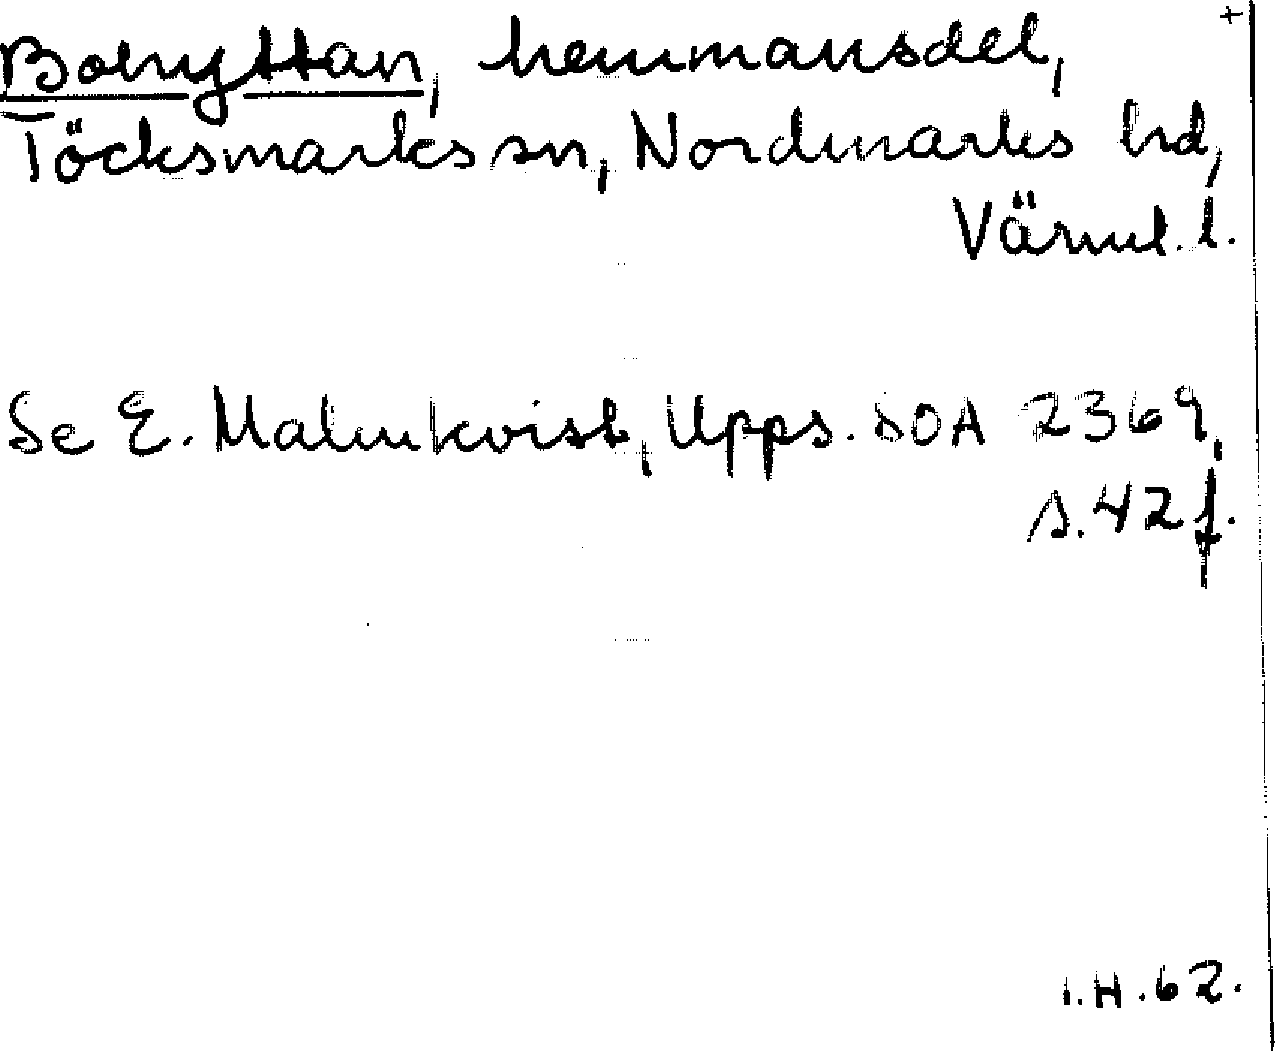 +
Bohyttan, hemmansdel,
Töcksmarks sn, Nordmarks hd,
Värml. l.
Se E. Malmkvist, Upps. SOA 2369,
s. 42 f.
I.H. 62.